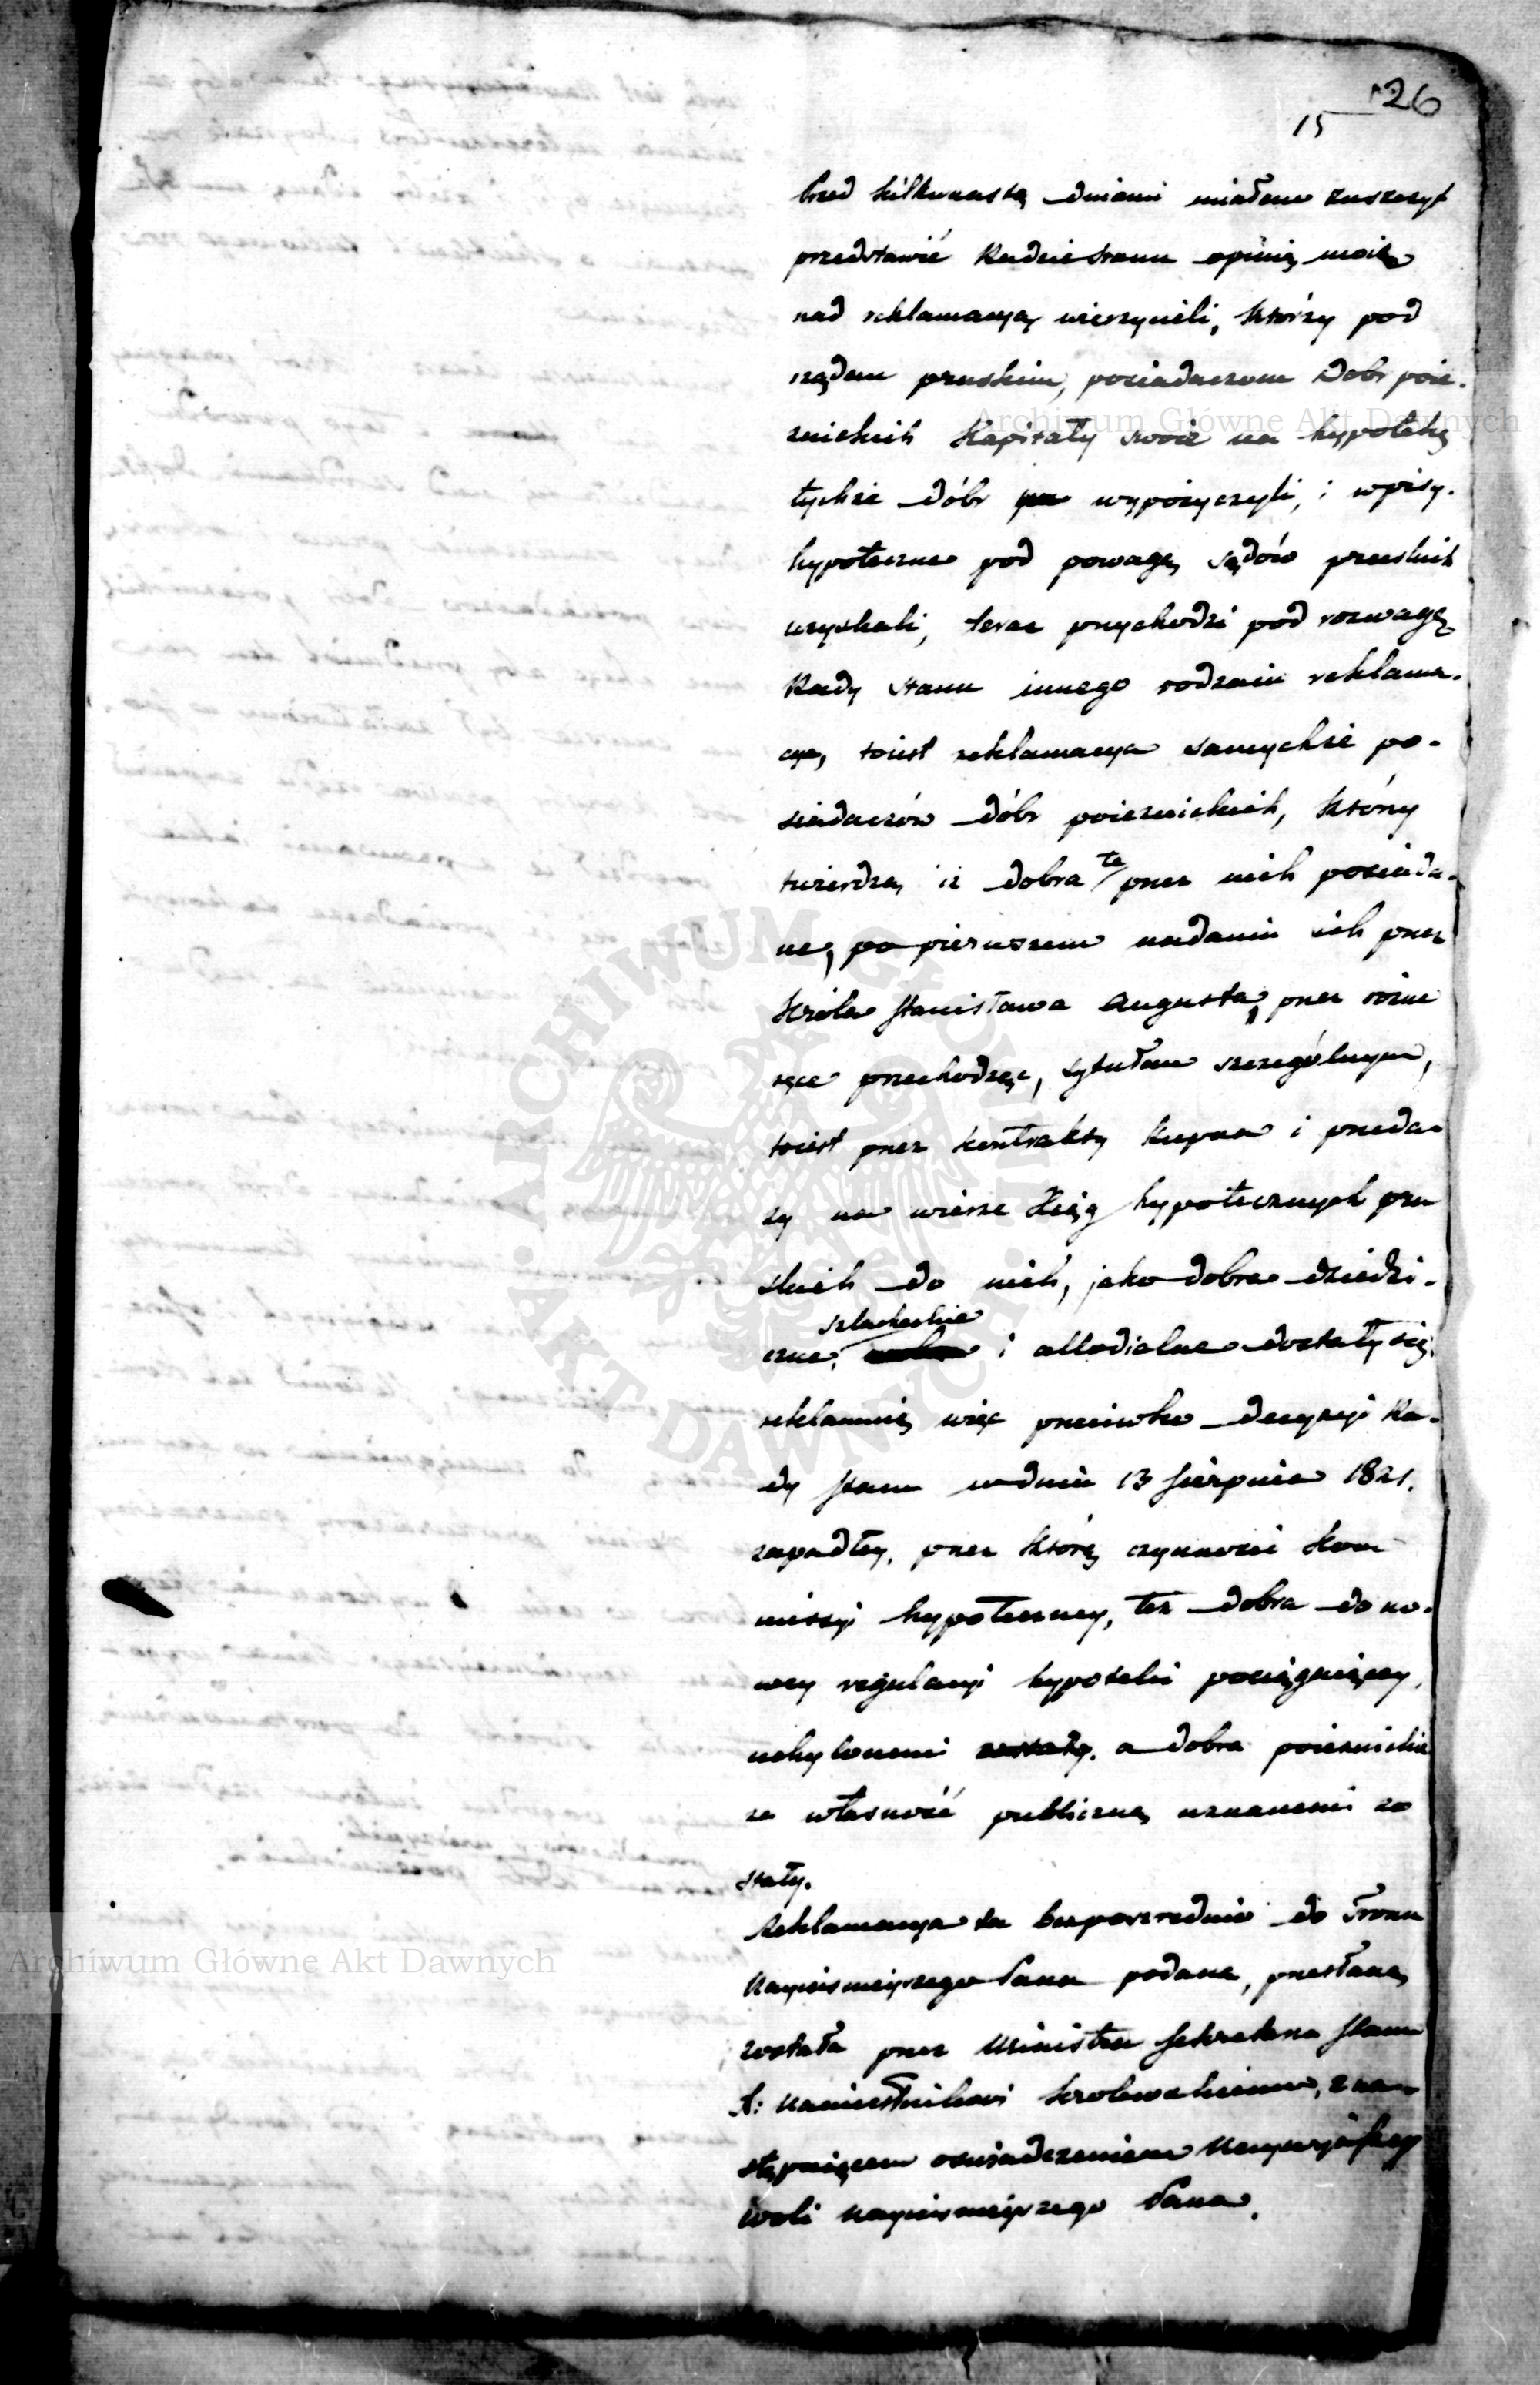 26
15
Przed kilkunastą dniami miałem zaszczyt
przedstawić Radzie Stanu opinią moię
nad reklamacyą wierzycieli, którzy pod
rządem pruskim, posiadaczom Dobr poie-
zuickich kapitały swoie na hypotekę
tychże dóbr wypożyczyli, i wpisy
hypoteczne pod powagą sądów pruskich
uzyskali, teraz przychodzi pod rozwagę
Rady Stanu innego rodzaiu reklama-
cya, toiest reklamacya samychże po-
siadaczów dóbr poiezuickich, którzy
twierdzą iż dobra te przez nich posiada-
ne, po pierwszem nadaniu ich przez
Króla Stanisława Augusta, przez rożne
ręce przechodząc, tytułem szczególnym,
toiest przez kontrakty kupna i przeda-
ży na wierze Ksiąg hypotecznych pru
skich do nich, jako dobra dziedzi-
czne, szlacheckie i allodialne dostały się.
reklamuią więc przeciwko decyzyi Ra-
dy Stanu w dniu 13 Sierpnia 1821.
zapadłey, przez którą czynności Kom
missyi hypoteczney, też dobra do no-
wey regulacyi hypoteki pociągaiącey,
uchylonemi a dobra poiezuickie
za własność publiczną uznanemi zo
stały.
Reklamacya ta bezpośrednio do Tronu
Nayiaśnieyszego Pana podana, przesłaną
została przez Ministra Sekretarza Stanu
X: Namiestnikowi Krolewskiemu, z na-
stępuiącem oświadczeniem
woli Nayiaśnieyszego Pana.
Archiwum Główne Akt Dawnych
Archiwum Główne Akt Dawnych
ARCHIWUM GŁÓWNE AKT DAWNYCH